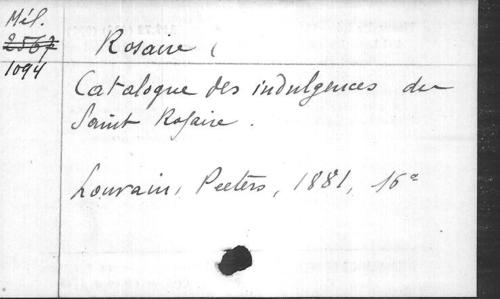 Mél.
2567
1094
Rosaire (
Catalogue des indulgences du
Saint Rosaire.
Louvain, Peeters, 1881, 16°